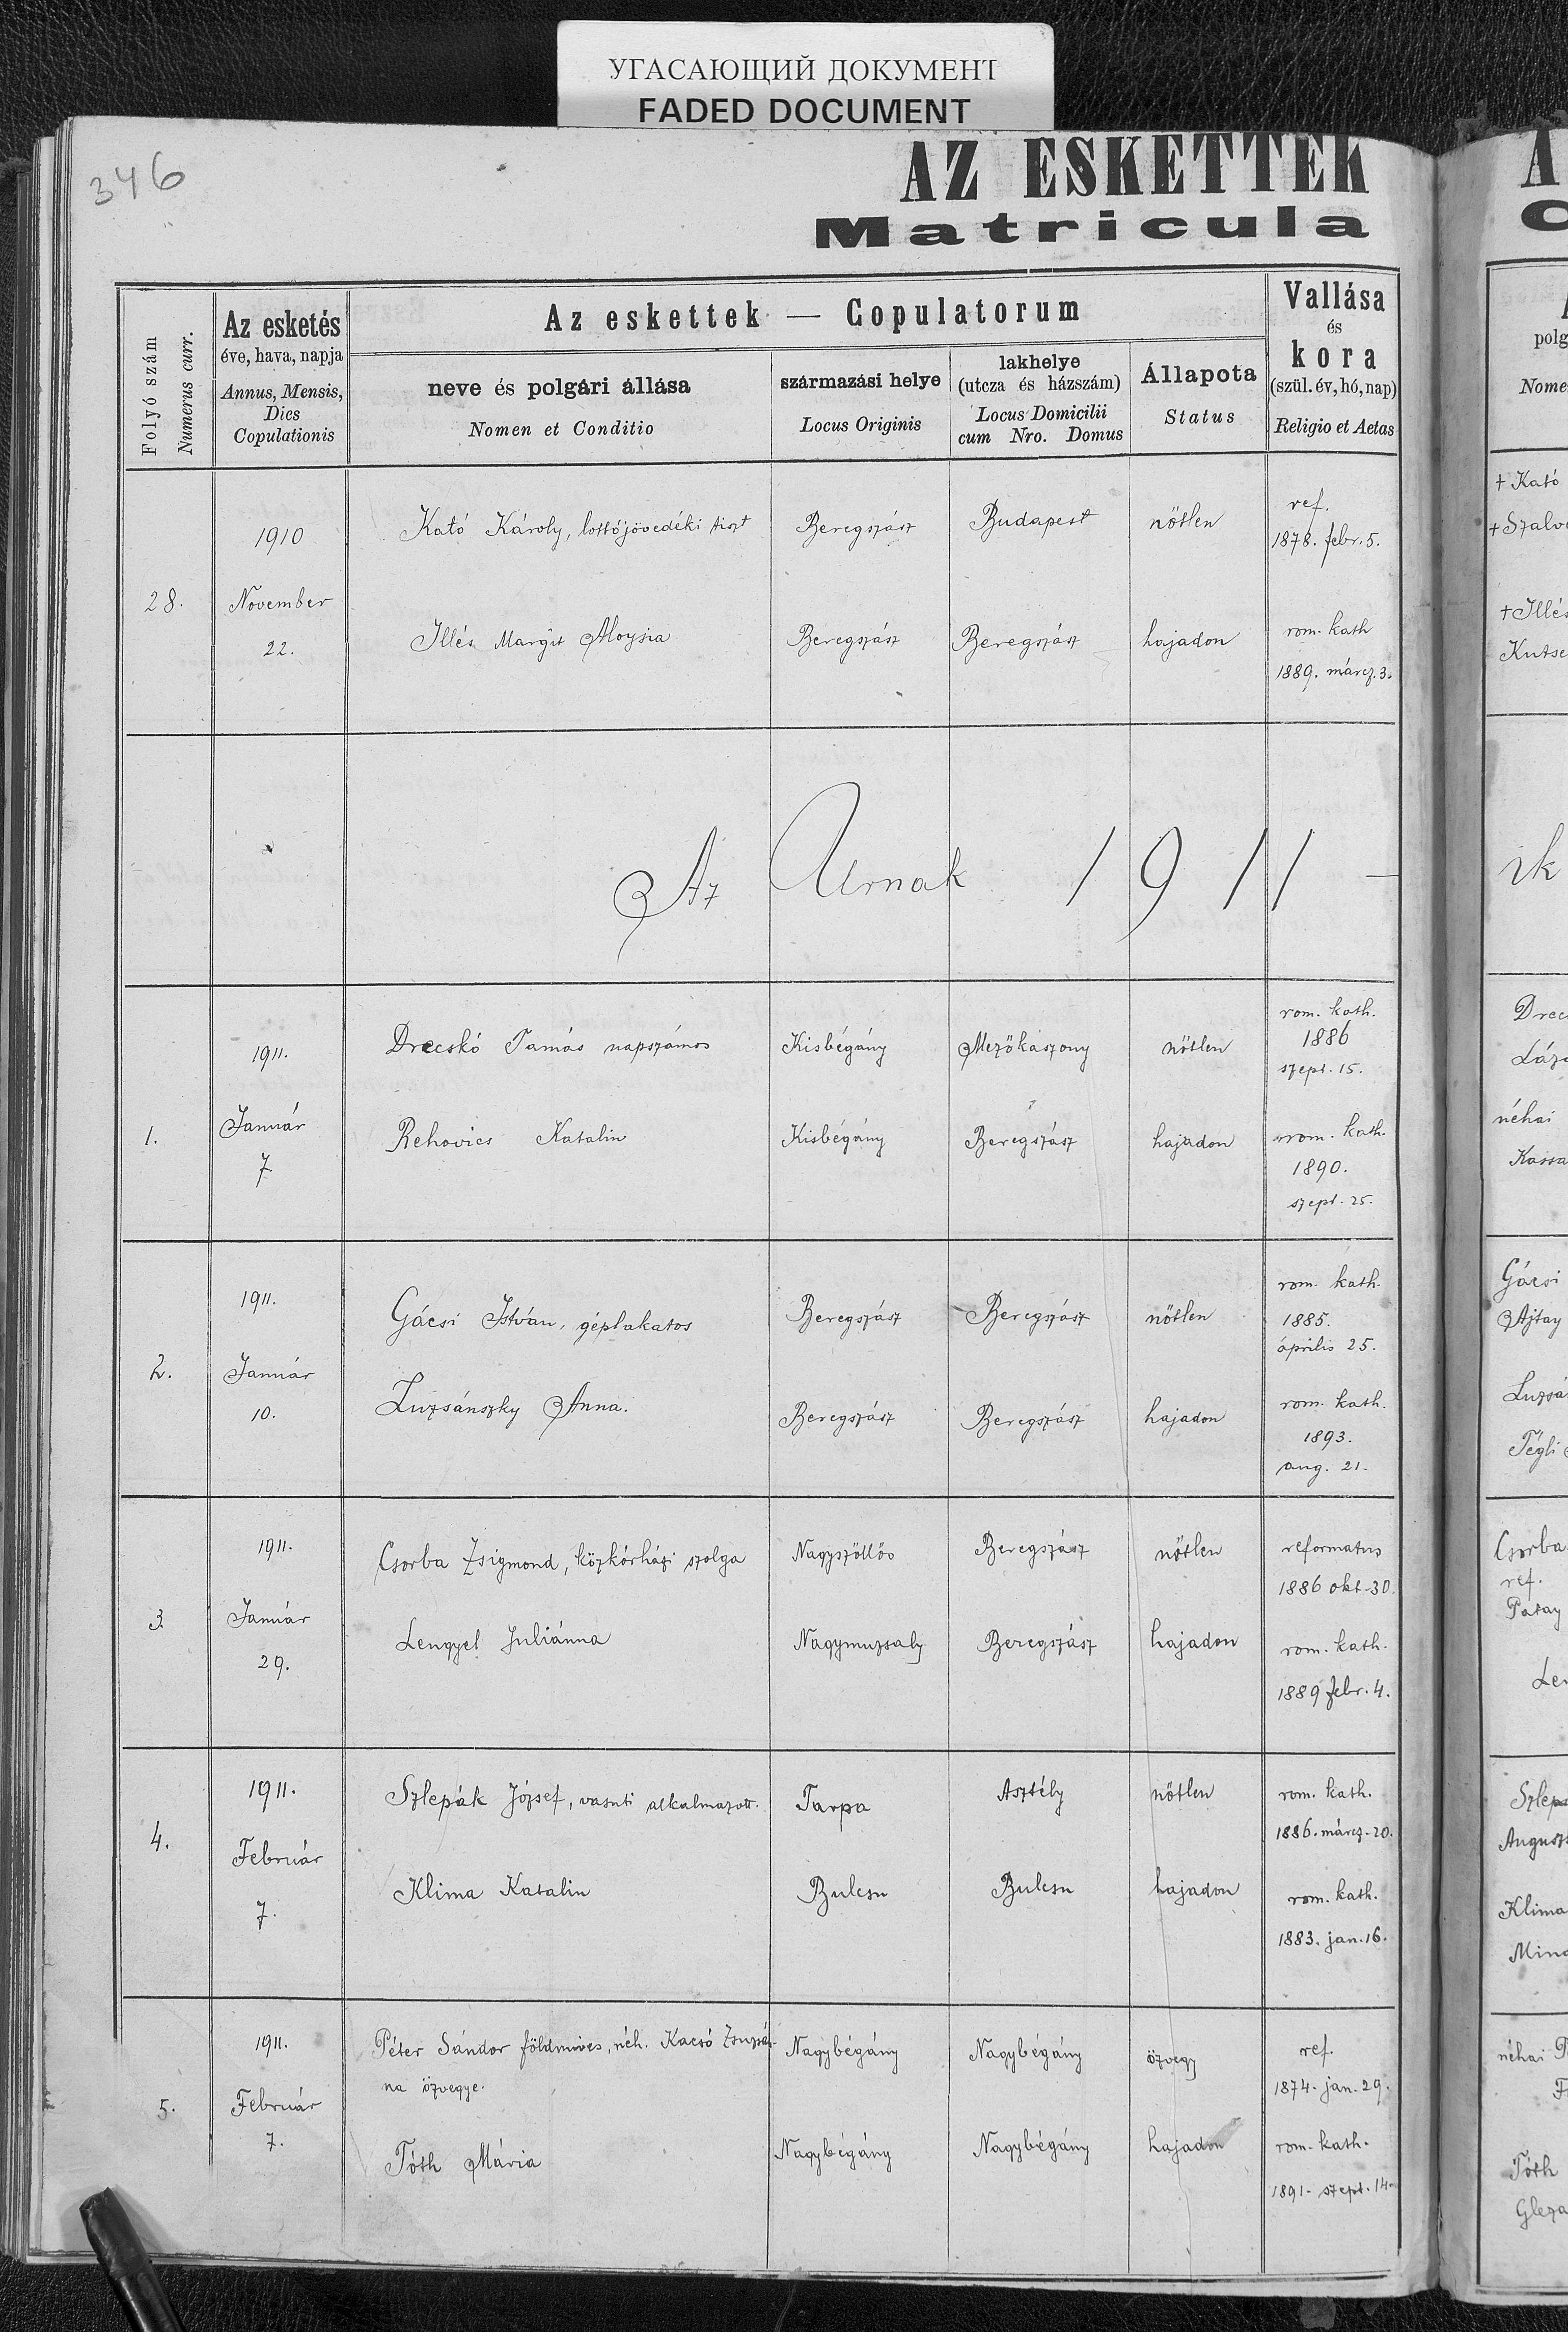 УГАСАЮЩИЙ ДОКУМЕНТ
FADED DOCUMENT
346
AZ ESKETTEK
Matricula
Folyó szám
Numerus curr.
Az esketés
éve, hava, napja
Annus, Mensis,
Dies
Copulationis
Az eskettek — Copulatorum
neve és polgári állása
Nomen et Conditio
származási helye
Locus Originis
lakhelye
(utcza és házszám)
Locus Domicilii
cum Nro. Domus
Állapota
Status
Vallása
és
kora
(szül. év, hó, nap)
Religio et Aetas
28.
1910
November
22.
Kató Károly, lottójövedéki tiszt
Beregszász
Budapest
nőtlen
ref.
1878. febr. 5.
Illés Margit Aloysia
Beregszász
Beregszász
hajadon
rom. kath
1889. márcz. 3.
Az Urnak 1911 —
1.
1911.
Január
7
Drecskó Tamás napszámos
Kisbégány
Mezőkaszony
nőtlen
rom. kath.
1886
szept. 15.
Rehovics Katalin
Kisbégány
Beregszász
hajadon
rom. kath.
1890.
szept. 25.
2.
1911.
Január
10.
Gácsi István, géplakatos
Beregszász
Beregszász
nőtlen
rom. kath.
1885.
április 25.
Luzsánszky Anna.
Beregszász
Beregszász
hajadon
rom. kath.
1893.
aug. 21.
3.
1911.
Január
29.
Csorba Zsigmond, közkórházi szolga
Nagyszőllős
Beregszász
nőtlen
reformatus
1886 okt. 30.
Lengyel Juliánna
Nagymuzsaly
Beregszász
hajadon
rom. kath.
1889 febr. 4.
4.
1911.
Február
7.
Szlepák József, vasuti alkalmazott.
Tarpa
Asztély
nőtlen
rom. kath.
1886. márcz. 20.
Klima Katalin
Bulcsu
Bulcsu
hajadon
rom. kath.
1883. jan. 16.
5.
1911.
Február
7.
Péter Sándor földmives, néh. Kacsó Zsuzsán-
na özvegye.
Nagybégány
Nagybégány
özvegy
ref.
1874. jan. 29.
Tóth Mária
Nagybégány
Nagybégány
hajadon
rom. kath.
1891. szept. 14.
A
polg
Nome
+ Kató
+ Szalv
+ Illés
Kutse
ik
Drec
Láz
néhai
Kassa
Gácsi
Ajtay
Luzsá
Tégli
Csorba
ref.
Patay
Le
Szlep
August
Klima
Min
néhai P
F
Tóth
Gleza